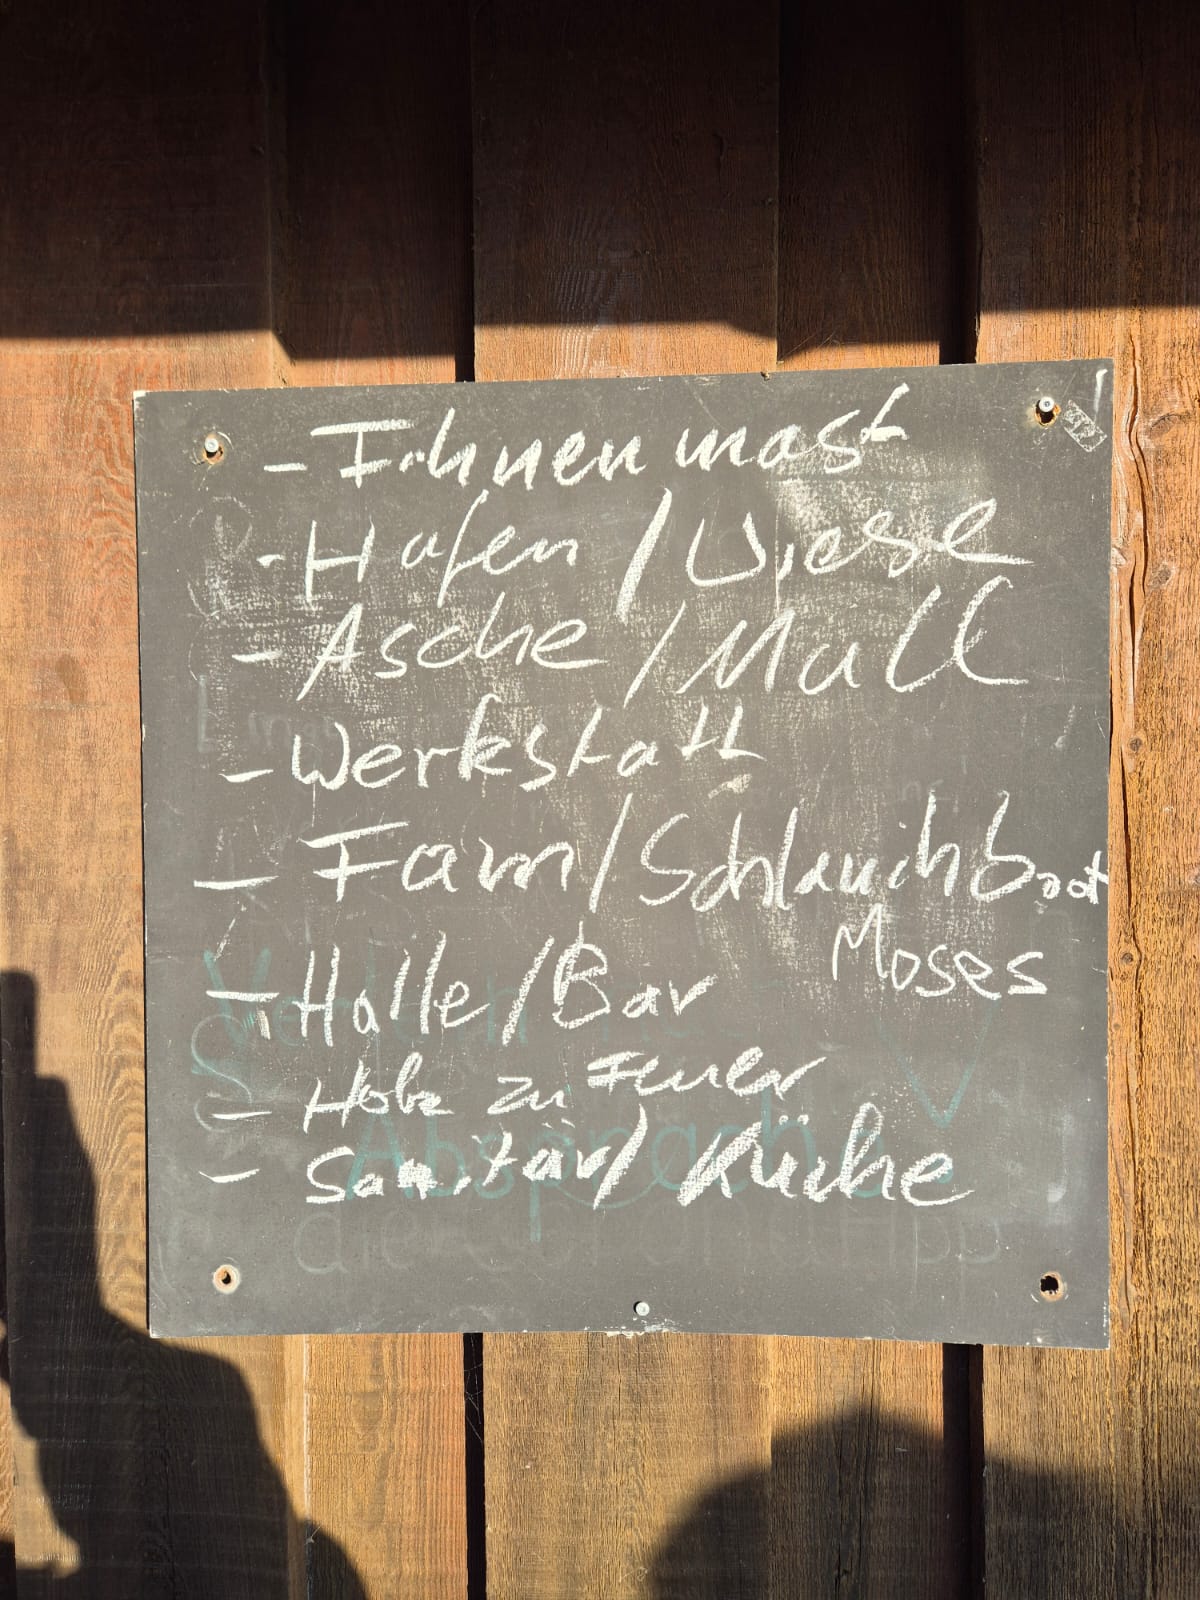 - Ihnenmast
- Hafen / Wiese
- Asche / Mull
- Werkstatt
- Fam / Schlauchboot
Moses
- Halle / Bar
- Holz zu Feuer
- Sanitär / Küche